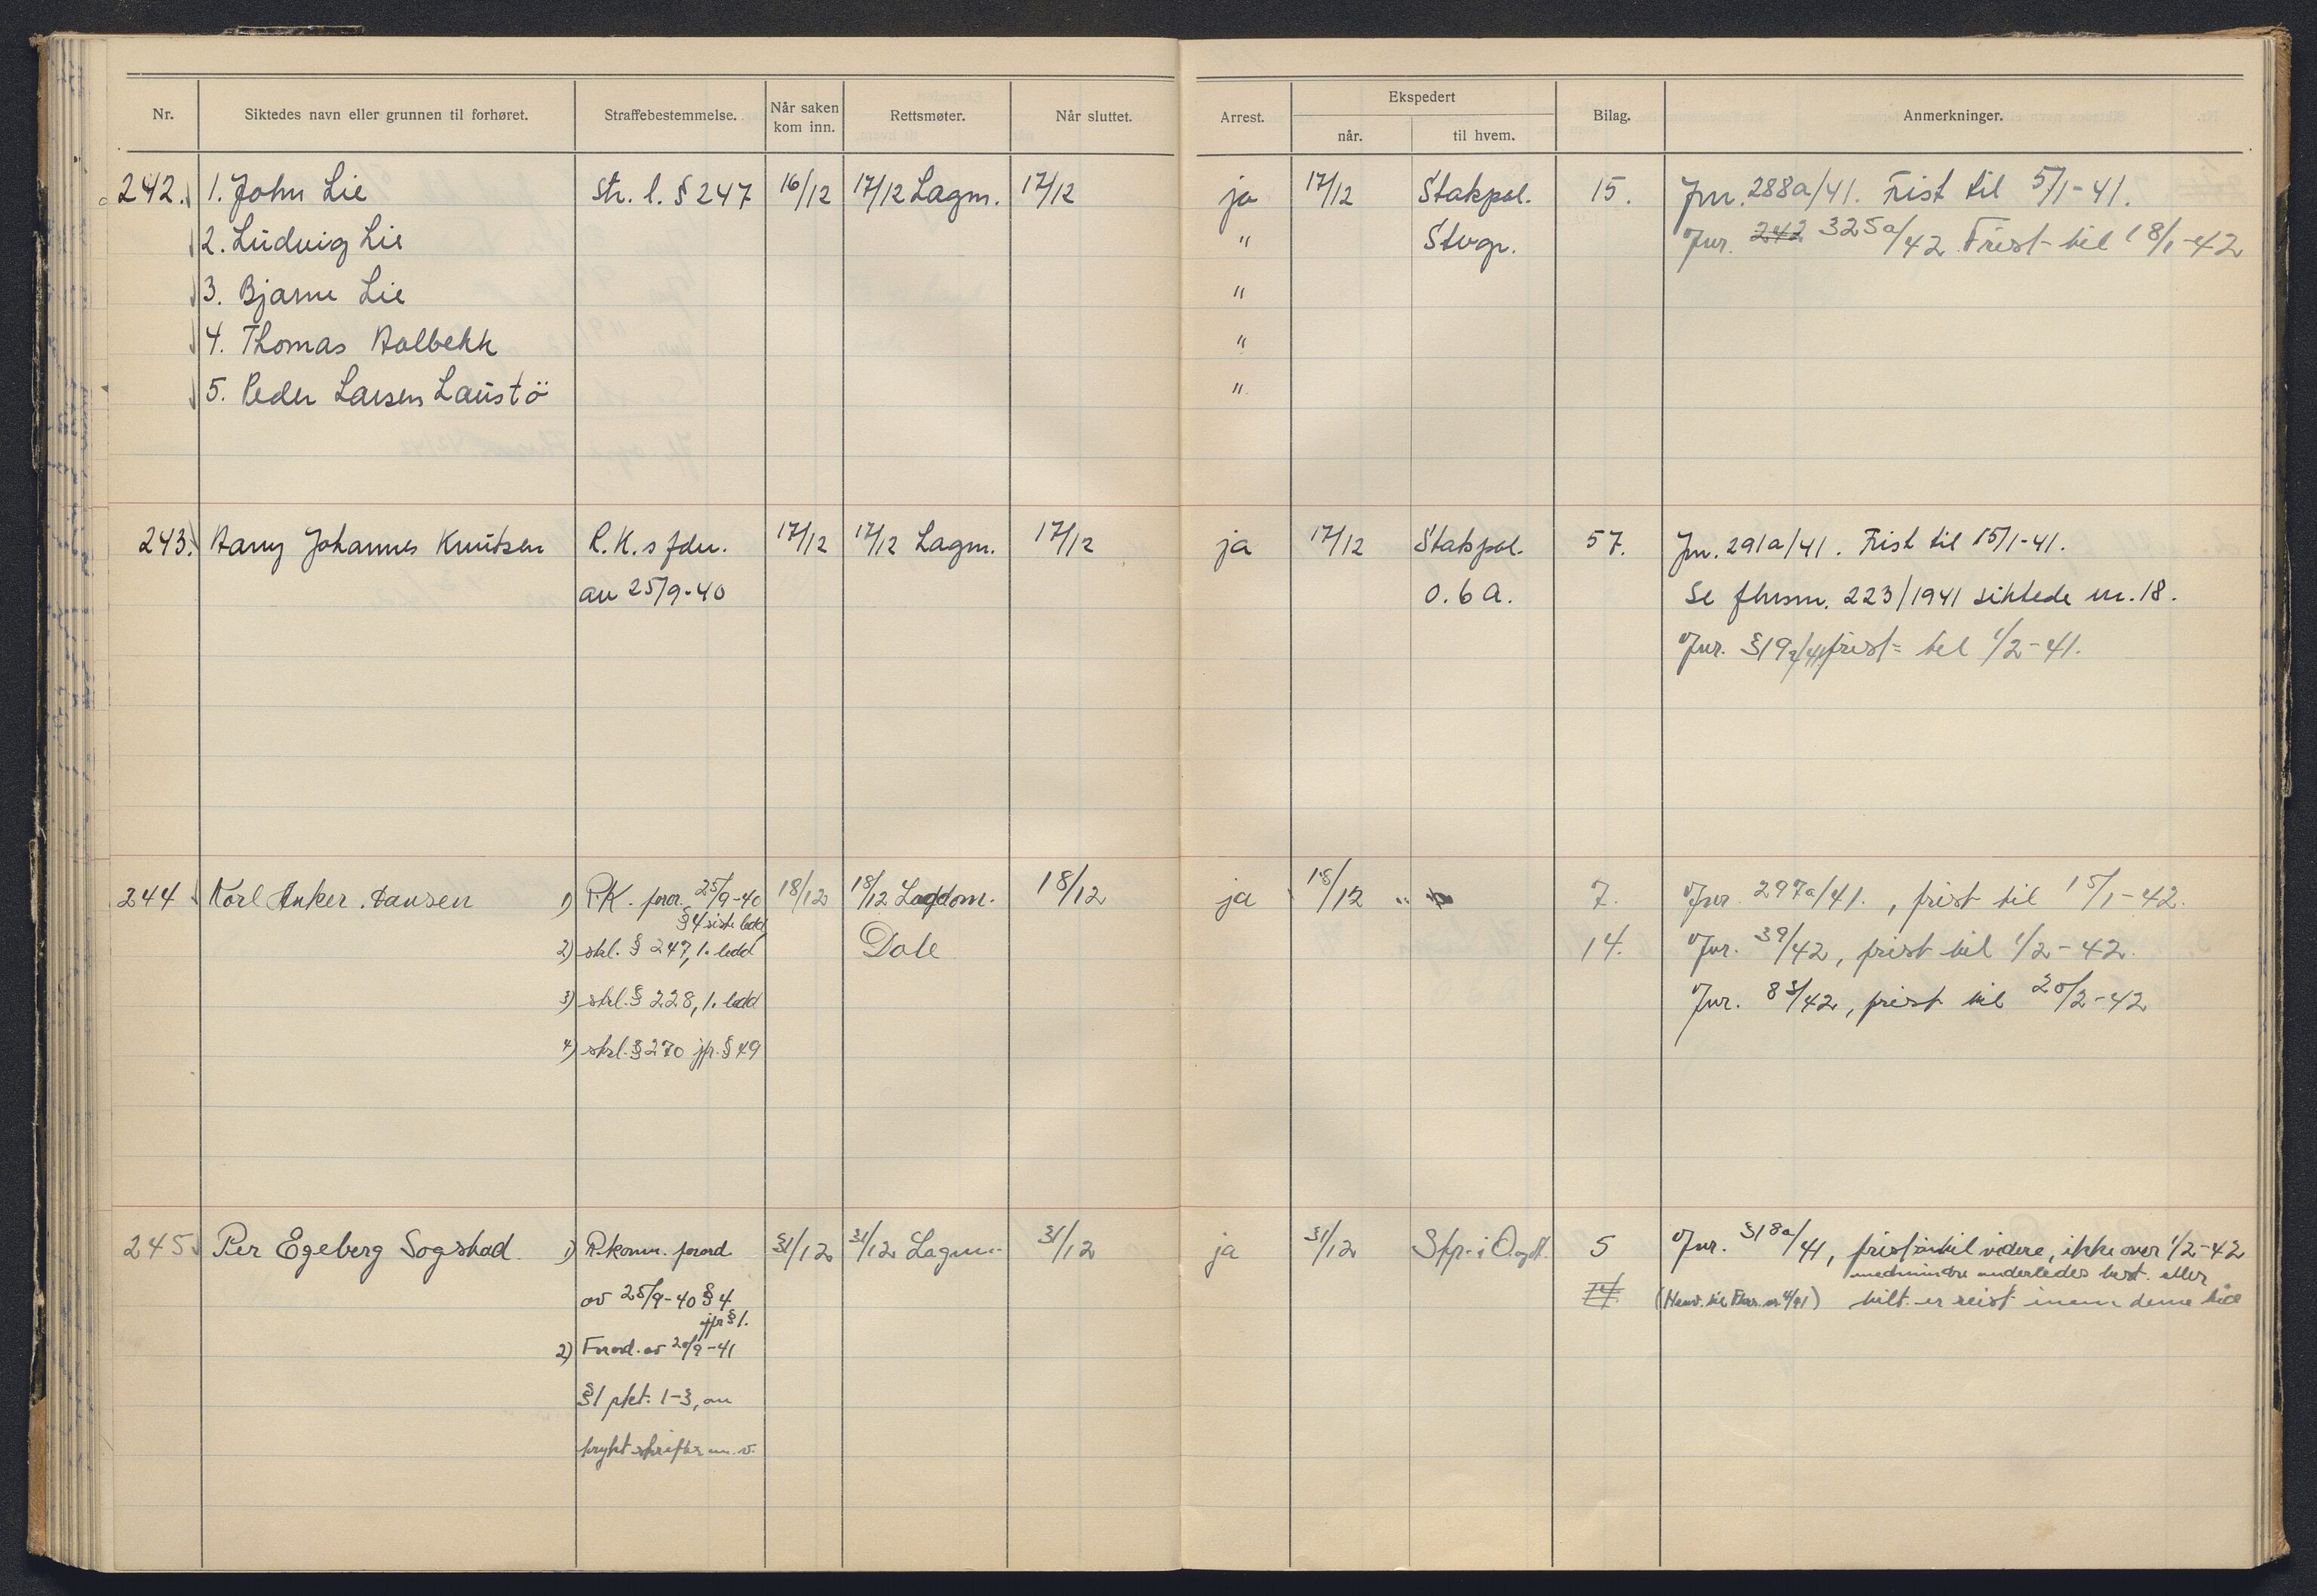 Nr. Siktedes navn eller grunnen til forhøret. Straffebestemmelse. Når saken kom inn. Rettsmøter. Når sluttet. Arrest. Ekspedert når. til hvem. Bilag. Anmerkninger.
242. 1. John Lie str. l. § 247 16/12 17/12 Lagm. 17/12 ja 17/12 Statspol. 15. Jnr. 288a/41. Frist til 5/1-41.
2. Ludvig Lie " Stvgr. Jnr. 242 325a/42 Frist til 18/1-42
3. Bjarne Lie "
4. Thomas Aalbekk "
5. Peder Larsen Laustö "
243. Harry Johannes Knutsen R.K.s fdn. 17/12 17/12 Lagm. 17/12 ja 17/12 Statspol. 57. Jnr. 291a/41. Frist til 15/1-41.
av 25/9-40 O. & A. Se fhrsnr. 223/1941 siktede nr. 18.
Jnr. 319a/41 frist til 1/2-41.
244 Karl Anker Hansen 1) R.K. foror. 25/9-40 18/12 18/12 18/12 ja 18/12 " 7. Jnr. 297a/41., frist til 15/1-42.
§ 4 siste ledd
2) strl. § 247, 1. ledd Dale 14. Jnr. 39/42, frist til 1/2-42.
3) strl. § 228, 1. ledd Jnr. 83/42, frist til 20/2-42
4) strl. § 270 jfr. § 49
245 Per Egeberg Sogstad 1) R.komm. forord. 31/12 31/12 Lagm. 31/12 ja 31/12 Stp. i O. og A. 5 Jnr. 318a/41, frist intil videre, ikke over 1/2-42
medmindre anderledes best. eller
av 25/9-40 § 4 14. tilt. er reist innen denne tid
jfr § 1.
2) Forord. av 20/9-41
§ 1 pkt. 1-3, om
trykt skrifter m. v.